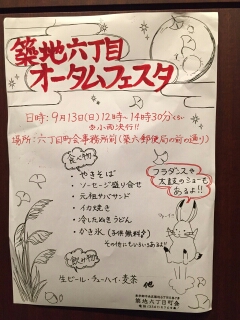 築地六丁目
オータムフェスタ
日時：9月13日(日)12時〜14時30分くらい
※小雨決行!!
場所：六丁目町会事務所前(築六郵便局の前の通り)
食べ物
・やきそば
・ソーセージ盛り合せ
・元祖サバサンド
・イカ焼き
・冷したぬきうどん
・かき氷(子供無料♪)
その他にもいろいろあるよ!!
フラダンスや
太鼓のショーも
あるよ!!
飲み物
生ビール・チューハイ・麦茶 他
築地六丁目町会